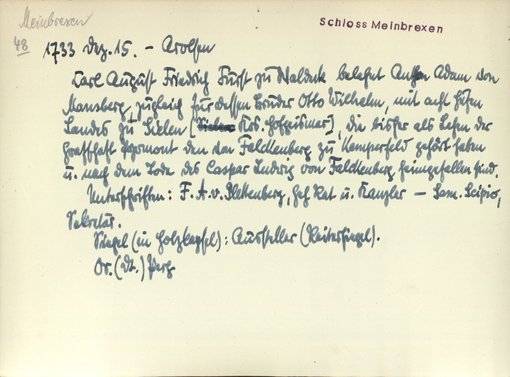 Meinbrexen
48
Schloss Meinbrexen
1733 Dez. 15. - Arolsen
Carl August Friedrich Fürst zu Waldeck belehnt Anton Adam von
Mansberg, zugleich für dessen Bruder Otto Wilhelm, mit acht Hufen
Landes zu Sielen [Krs. Hofgeismar], die bisher als Lehen der
Grafschaft Pyrmont den von Falckenberg zu Kempenfeld gehört haben
u. nach dem Tode des Caspar Ludwig von Falckenberg heimgefallen sind.
Unterschriften: F. A. v. Klettenberg, Geh Rat u. Kanzler - Sam. Scipio,
Sekretär.
Siegel (in Holzkapsel): Aussteller (Reitersiegel).
Or. (Dt.) Perg